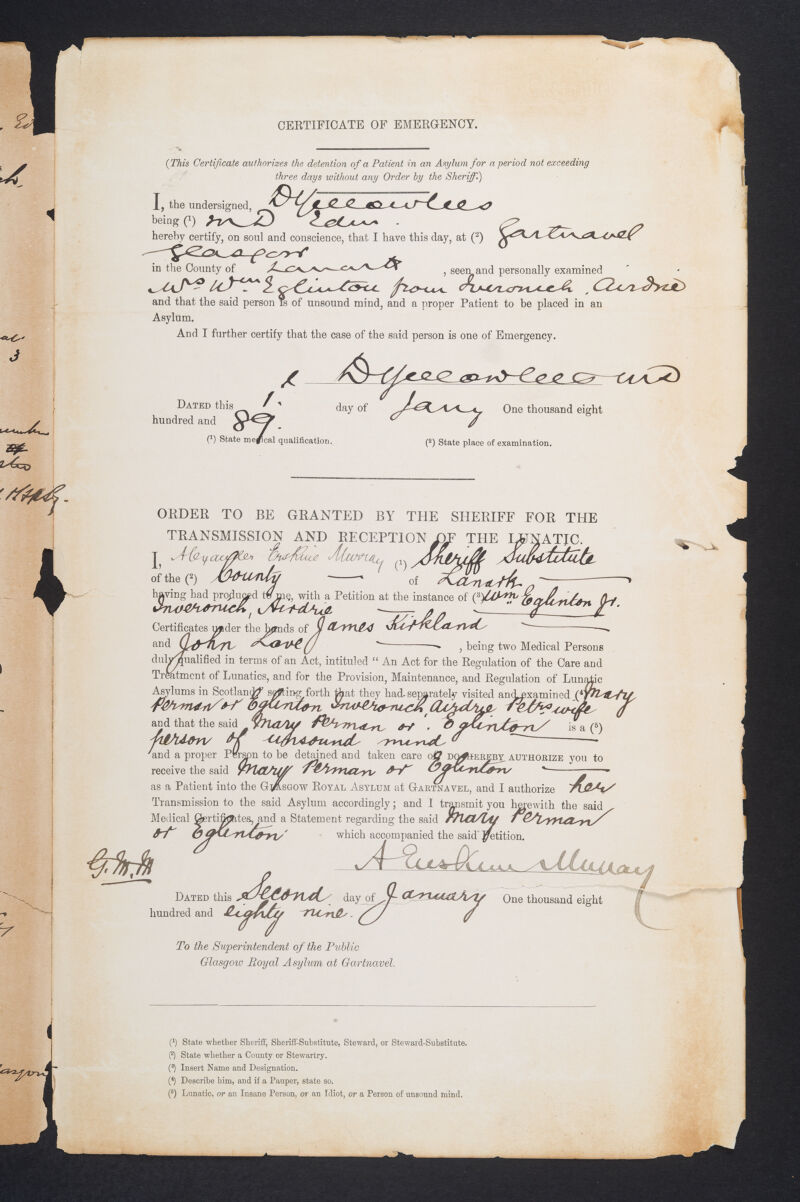 CERTIFICATE OF EMERGENCY.
(This Certificate authorizes the detention of a Patient in an Asylum for a period not exceeding
three days without any Order by the Sheriff.)
I, the undersigned, D Yellowlees
being (1) M D Edin.
hereby certify, on soul and conscience, that I have this day, at (2) Gartnavel
Glasgow
in the County of Lanark , seen and personally examined
Mrs Wm Eglinton from Inveronich, Airdrie
and that the said person is of unsound mind, and a proper Patient to be placed in an
Asylum.
And I further certify that the case of the said person is one of Emergency.
D Yellowlees MD
DATED this 1. day of Jany One thousand eight
hundred and 89.
(1) State medical qualification. (2) State place of examination.
ORDER TO BE GRANTED BY THE SHERIFF FOR THE
TRANSMISSION AND RECEPTION OF THE LUNATIC.
I, Alexander Erskine Murray (1) Sheriff Substitute
of the (2) County of Lanark
having had produced to me, with a Petition at the instance of (3) Wm Eglinton Jr.
Inveronich, Airdrie
Certificates under the hands of James Kirkland
and John Love , being two Medical Persons
duly qualified in terms of an Act, intituled "An Act for the Regulation of the Care and
Treatment of Lunatics, and for the Provision, Maintenance, and Regulation of Lunatic
Asylums in Scotland," setting forth that they had separately visited and examined (4) Mary
Perman or Eglinton Inveronich, Airdrie Petrs wife
and that the said Mary Perman or Eglinton is a (5)
person of unsound mind
and a proper Person to be detained and taken care of, DO HEREBY AUTHORIZE you to
receive the said Mary Perman or Eglinton
as a Patient into the GLASGOW ROYAL ASYLUM at GARTNAVEL, and I authorize her
Transmission to the said Asylum accordingly; and I transmit you herewith the said
Medical Certificates, and a Statement regarding the said Mary Perman
or Eglinton which accompanied the said Petition.
A Erskine Murray
G.M.M
DATED this Second day of January One thousand eight
hundred and eighty nine.
To the Superintendent of the Public
Glasgow Royal Asylum at Gartnavel.
(1) State whether Sheriff, Sheriff-Substitute, Steward, or Steward-Substitute.
(2) State whether a County or Stewartry.
(3) Insert Name and Designation.
(4) Describe him, and if a Pauper, state so.
(5) Lunatic, or an Insane Person, or an Idiot, or a Person of unsound mind.